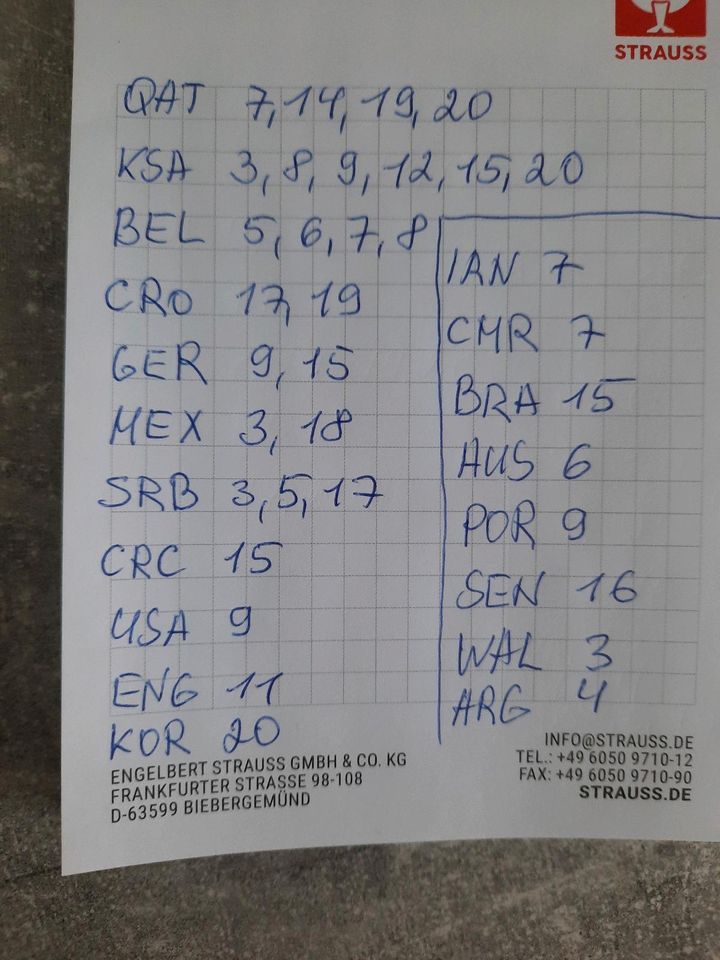 STRAUSS
QAT 7, 14, 19, 20
KSA 3, 8, 9, 12, 15, 20
BEL 5, 6, 7, 8
CRO 17, 19
GER 9, 15
MEX 3, 18
SRB 3, 5, 17
CRC 15
USA 9
ENG 11
KOR 20
IAN 7
CMR 7
BRA 15
AUS 6
POR 9
SEN 16
WAL 3
ARG 4
ENGELBERT STRAUSS GMBH & CO. KG
FRANKFURTER STRASSE 98-108
D-63599 BIEBERGEMÜND
INFO@STRAUSS.DE
TEL.: +49 6050 9710-12
FAX: +49 6050 9710-90
STRAUSS.DE